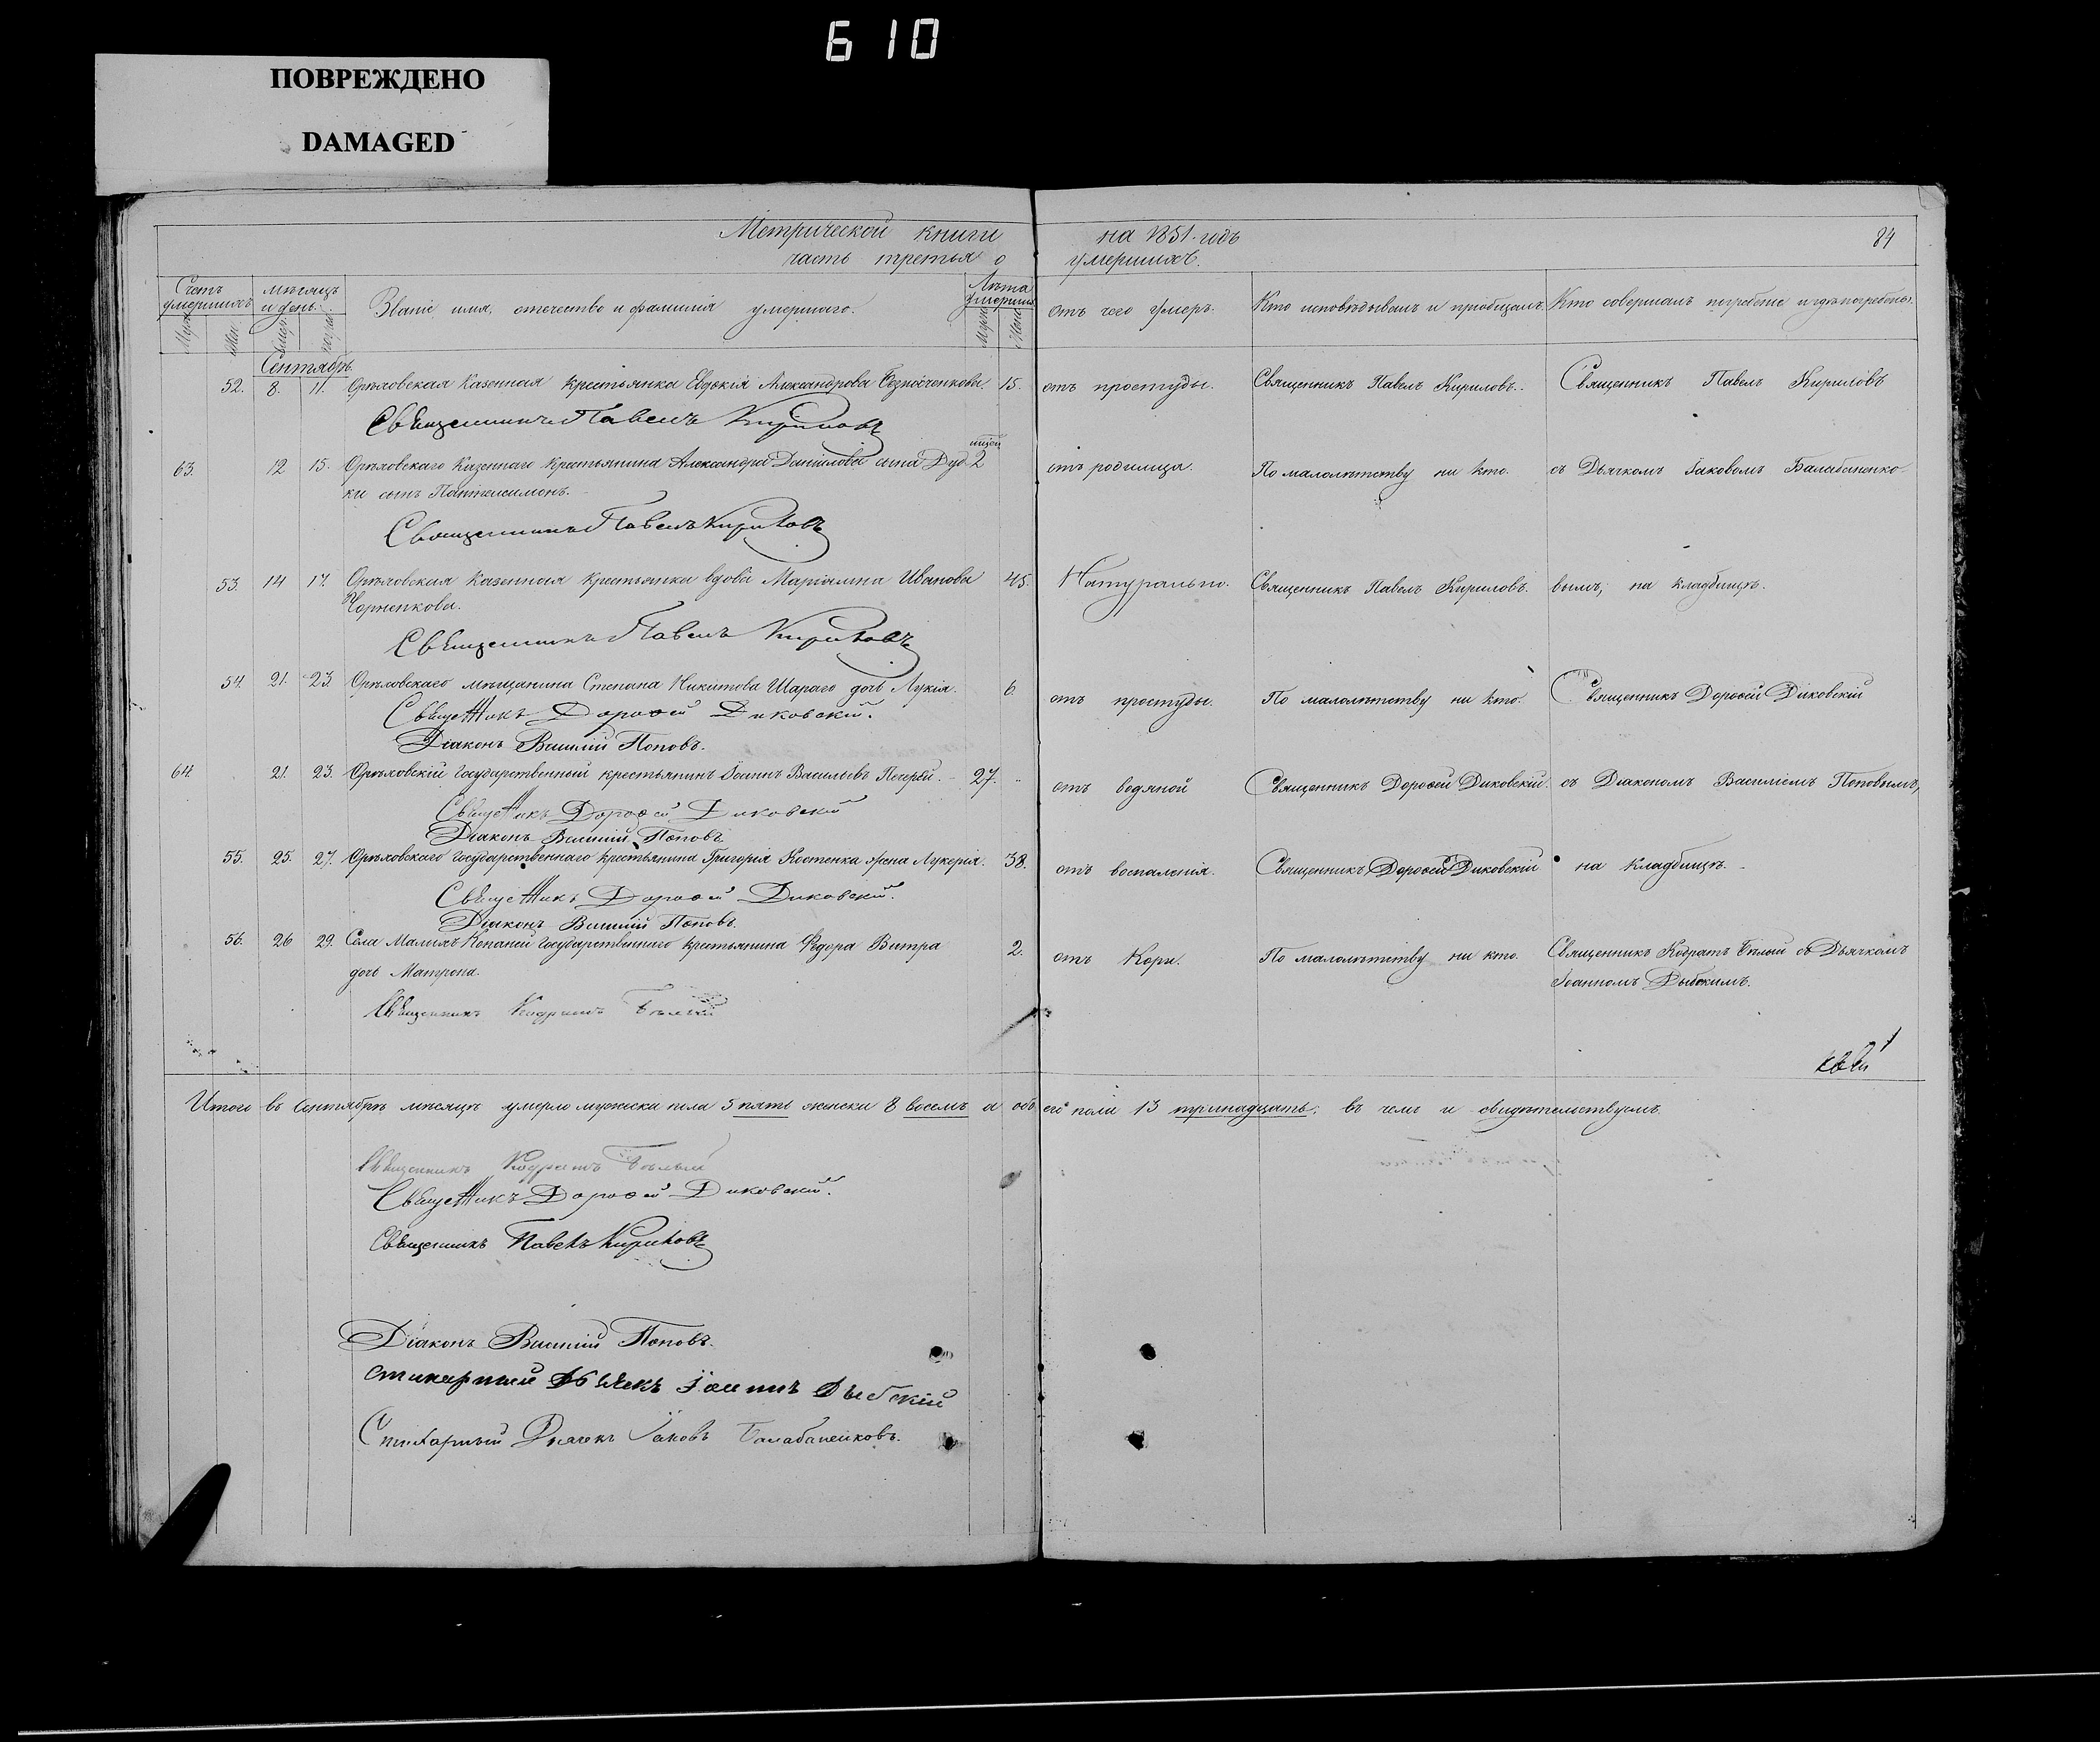 610
ПОВРЕЖДЕНО
DAMAGED
Метрической книги на 1851 годъ
84
часть третья о умершихъ.
Счетъ умершихъ
Муж.
Жен.
мѣсяцъ и день.
Званіе имя, отечество и фамилія умершаго.
Лѣта умерших
Муж.
Жен.
отъ чего умеръ.
Кто исповѣдывалъ и пріобщалъ.
Кто совершалъ погребеніе и гдѣ погребены.
Сентябрь
52. 8. 11. Орѣховская казенная крестьянка Евдокія Александрова 15. отъ простуды. Священникъ Павелъ Кириловъ. Священникъ Павелъ Кириловъ
Священникъ Павелъ Кириловъ
63. 12 15. Орѣховскаго казеннаго крестьянина Александра Данилова сына Дуд 2 отъ родимца. По малолѣтству ни кто. съ Дьячкомъ Іаковомъ Балабаненко
ки сынъ Пантелимонъ.
Священникъ Павелъ Кириловъ
53. 14 17. Орѣховская казенная крестьянка вдова Маріамна Иванова 45. Натурально. Священникъ Павелъ Кириловъ. вымъ, на кладбищѣ.
Чорненкова.
Священникъ Павелъ Кириловъ
54. 21. 23. Орѣховскаго мѣщанина Степана Никитова Шараго дочь Лукія. 6. отъ простуды. По малолѣтству ни кто. Священникъ Дорофей Диковскій
Священникъ Дорофей Диковскій.
Діаконъ Василій Поповъ.
64 21. 23. Орѣховскій государственный крестьянинъ Іоаннъ Васильевъ 27. отъ водяной Священникъ Дорофей Диковскій. съ Діакономъ Василіемъ Поповымъ,
Священникъ Дорофей Диковскій
Діаконъ Василій Поповъ.
55. 25. 27. Орѣховскаго государственнаго крестьянина Григорія Костенка жена Лукерія. 38. отъ воспаленія. Священникъ Дорофей Диковскій на кладбищѣ.
Священникъ Дорофей Диковскій.
Діаконъ Василій Поповъ.
56. 26 29. Села Малыхъ Копаней государственнаго крестьянина Федора Витра 2. отъ Кори. По малолѣтству ни кто. Священникъ Кодратъ Бѣлый съ Дьячкомъ
дочь Матрона. Іоанномъ Дыбскимъ.
Священникъ Кодратъ Бѣлый
Итого въ Сентябрѣ мѣсяцѣ умерло мужеска пола 5 пять женска 8 восемь а обоего пола 13 тринадцать; въ чемъ и свидѣтельствуемъ.
Священникъ Кодратъ Бѣлый
Священникъ Дорофей Диковскій.
Священникъ Павелъ Кириловъ
Діаконъ Василій Поповъ.
Стихарный Дьячекъ Іоаннъ Дыбскій
Стихарный Дьячекъ Іаковъ Балабаненковъ.